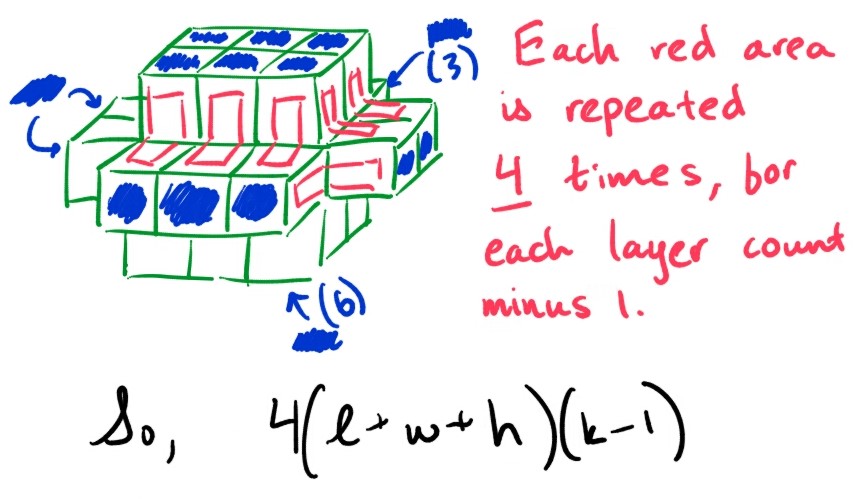 (3)
Each red area
is repeated
4 times, bor
each layer count
minus 1.
(6)
So, 4(l+w+h)(k-1)